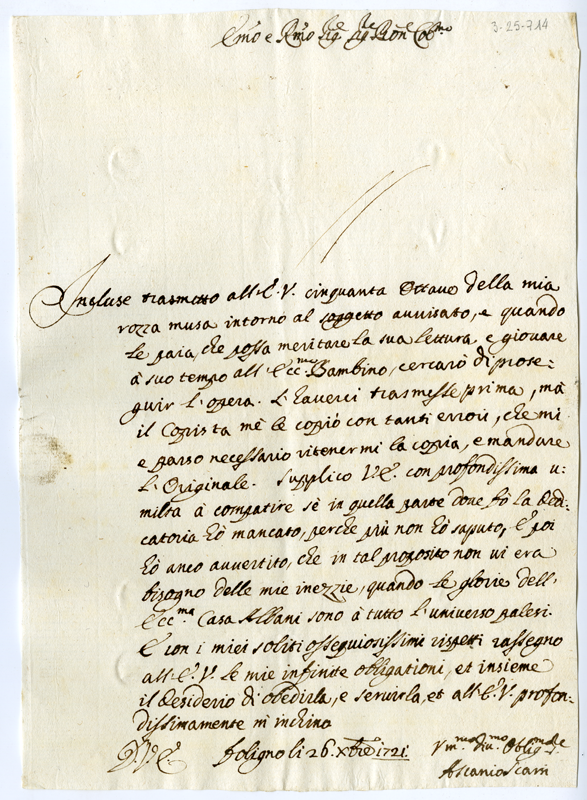 3-25-714
Emo e Rmo Sig.e Sig.e Pron.e Col.mo
Incluse trasmetto all'E.V. cinquanta Ottave della mia
rozza musa intorno al soggetto avvisato, e quando
le paia, che possa meritare la sua lettura, e giovare
à suo tempo all'Ecc.mo Bambino, cercarò di prose=
guir l'opera. L'haverei trasmesse prima, mà
il Copista mè le copiò con tanti errori, che mi
e parso necessario ritenermi la copia, e mandare
l'Originale. Supplico V.E. con profondissima u=
miltà à compatire sè in quella parte dove fò la Dedi=
catoria hò mancato, perche più non hò saputo, E poi
hò anco avvertito, che in tal proposito non vi era
bisogno delle mie inezzie, quando le glorie dell'
Ecc.ma Casa Albani sono à tutto l'universo palesi.
E con i miei soliti ossequiosissimi rispetti rassegno
all'E.V. le mie infinite obligationi, et insieme
il desiderio di obedirla, e servirla, et all'E.V. profon=
dissimamente m'inchino
D.V.E. Foligno li 26. Xbre 1721.
Vm.mo Div.mo Oblig.mo Se.
Ascanio Scarn